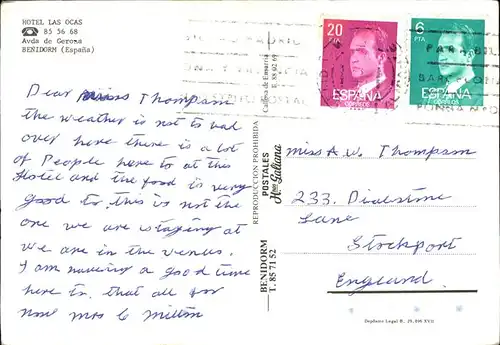 HOTEL LAS OCAS
☎ 85 56 68
Avda de Gerona
BENIDORM (España)
Dear miss Thompson
the weather is not to bad
over here there is a lot
of People here to at this
Hotel and the food is very
good to, this is not the
one we are staying at
we are in the venus.
I am having a good time
here to. that all for
now mrs C milton
REPRODUCCION PROHIBIDA
BENIDORM
T. 85 71 52
POSTALES
Hnos Galiana
20
PTA
ESPAÑA
CORREOS
6
PTA
ESPAÑA
CORREOS
miss A. W. Thompson
233.
Lane
Stockport
England.
Depósito Legal B.